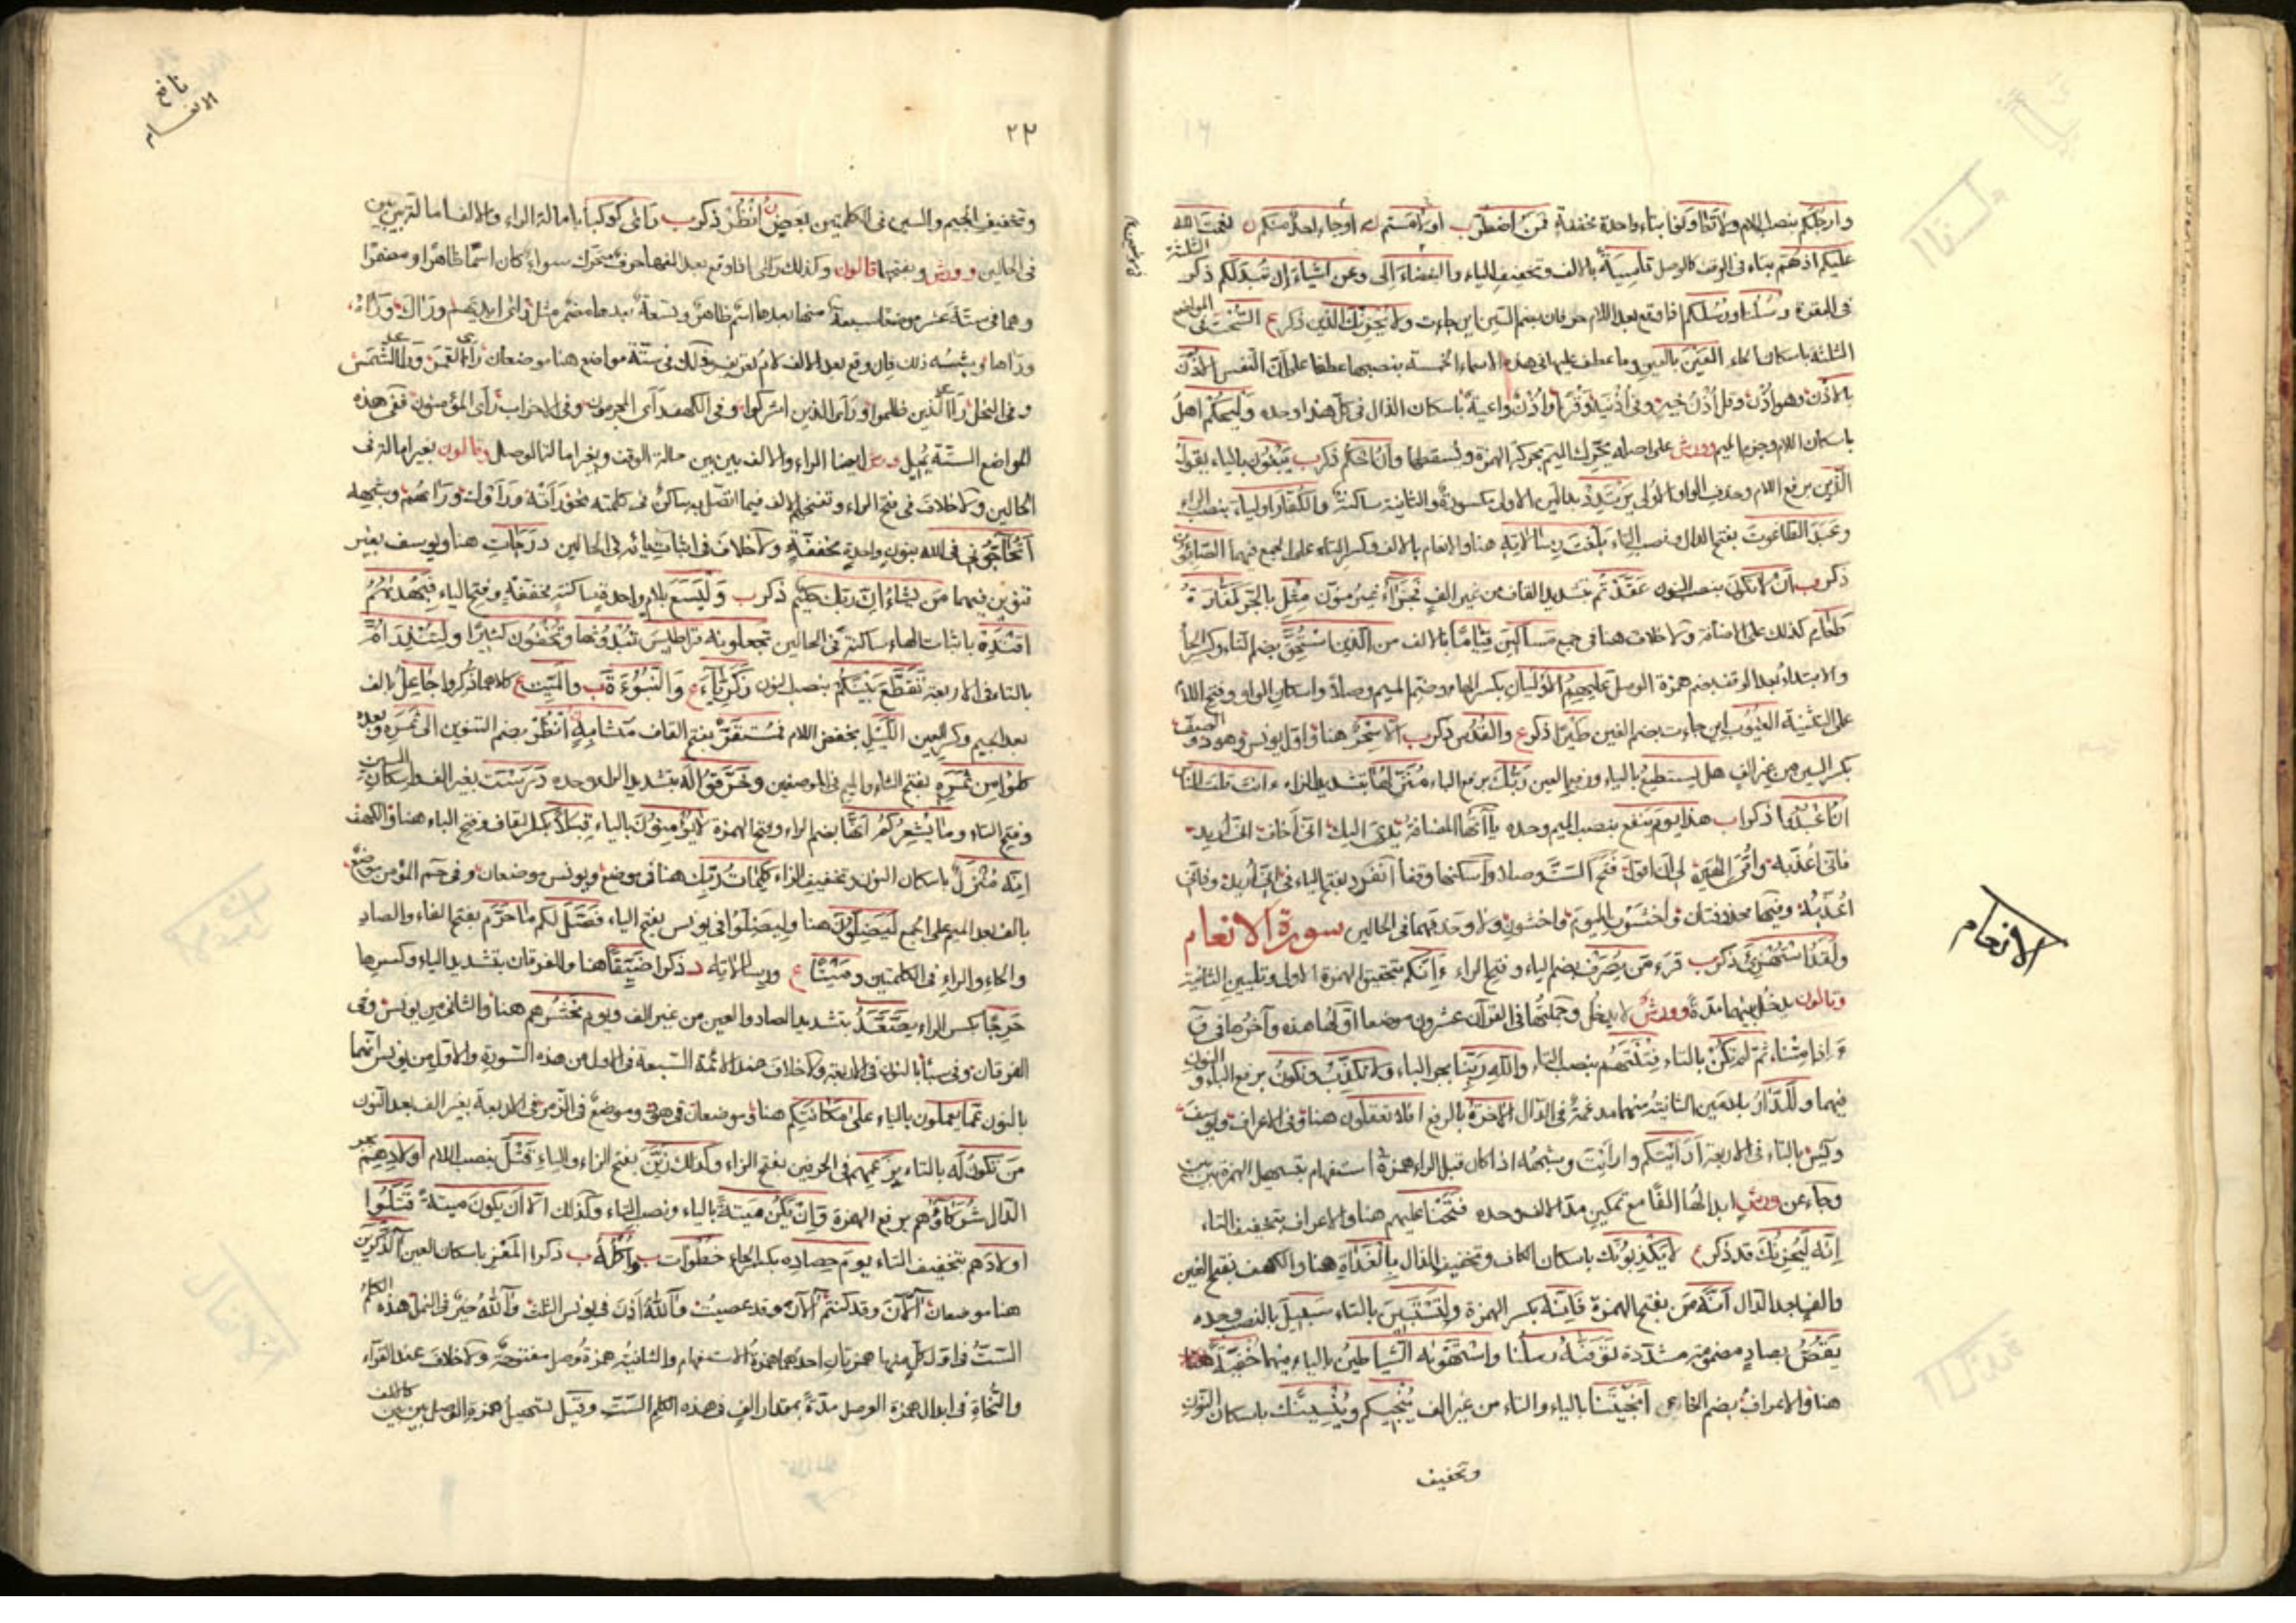 وارجلكم بنصب اللام ولا تعاونوا بتاء واحدة مخففة فمن اضطر ب او لامستم او جاء احد منكم
عليكم اذ هم بتاء في الوقف كالوصل قاسية بالالف وتخفيف الياء والبغضاء الى وعن اشياء ان تبد لكم ذكر
في البقرة رسلنا ورسلكم اذا وقع بعد اللام حرفان بضم السين اين جاءت ولا يحزنك الذين ذكر ع السحت في المواضع
الثلاثة باسكان الحاء العين بالعين وما عطف عليها في هذه الاسماء الخمسة بنصبها عطفا على ان النفس الاذن
بالاذن وهو اذن وقل اذن خير وفي اذنيه وقرا واذن واعية باسكان الذال في كل هذا وحده وليحكم اهل
باسكان اللام وجزم الميم وورش على اصله يحرك الميم بحركة الهمزة ويسقطها وان احكم ذكر ب يبغون بالياء يقول
الذين برفع اللام وحذف الواو الاولى يرتدد بدالين الاولى مكسورة والثانية ساكنة والكفار اولياء بنصب الراء
وعبد الطاغوت بفتح الدال ونصب التاء بلغت رسالاته هنا والانعام بالالف وكسر التاء على الجمع فيهما الصابون
ذكر ب ان لا تكون بنصب النون عقدتم بتشديد القاف من غير الف فجزاء غير منون مثل بالجر كفارة
طعام كذلك على الاضافة ولا خلاف هنا في جمع مساكين قياما بالالف من الذين استحق بضم التاء وكسر الحاء
والابتداء بعد الوقف بضم همزة الوصل عليهم الاوليان بكسر الهاء وضم الميم وصلا واسكان الواو وفتح اللام
على التثنية الغيوب اين جاءت بضم الغين طيرا ذكر ع والقدس ذكر ب الا سحر هنا واول يونس وهود والصف
بكسر السين من غير الف هل يستطيع بالياء ورفع العين ربك برفع الباء منزلها بتشديد الزاء ءانت قلت للناس
ان اعبدوا ذكر ب هذا يوم ينفع بنصب الميم وحده ياآتها المضافة يدي اليك اني اخاف اني اريد
فاني اعذبه وامي الهين لي ان اقول فتح الست وصلا واسكنها وقفا انفرد بفتح الياء في اني اريد وفاني
اعذبه وفيها محذوفتان واخشون اليوم واخشون ولا وحذفهما في الحالين سورة الانعام
ولقد استهزئ ذكر ب قرء من يصرف بضم الياء وفتح الراء ءانكم بتحقيق الهمزة الاولى وتليين الثانية
وقالون يدخل بينهما مدة وورش لا يدخل وجملتها في القرآن عشرون موضعا اولها هذه وآخرها في ق
ءاذا متنا ثم لم تكن بالتاء فتنتهم بنصب التاء والله ربنا بجر الباء ولا نكذب ونكون برفع الباء والنون
فيهما وللدار بلامين الثانية منهما مدغمة في الدال الاخرة بالرفع افلا تعقلون هنا وفي الاعراف ويوسف
ويس بالتاء في الاربعة ارايتكم وارايت وشبهه اذا كان قبل الراء همزة استفهام بتسهيل الهمزة بين بين
وجاء عن ورش ابدالها الفا مع تمكين مد الالف وحده فتحنا عليهم هنا والاعراف بتخفيف التاء
انه ليحزنك قد ذكر ع لا يكذبونك باسكان الكاف وتخفيف الذال بالغداة هنا والكهف بفتح الغين
والف بعد الدال انه من بفتح الهمزة فانه بكسر الهمزة ولتستبين بالتاء سبيل بالنصب وحده
يقص بصاد مضمومة مشددة توفته رسلنا واستهوته الشياطين بالتاء فيهما خفية
هنا والاعراف بضم الخاء انجيتنا بالياء والتاء من غير الف ينجيكم وينسينك باسكان النون
وتخفيف
الانعام
نافع
الانعام
٢٣
وتخفيف الجيم والسين في الكلمتين بعض انظر ذكر ب رأى كوكبا بامالة الراء والالف امالة بين بين
في الحالين وورش وبفتحها قالون وكذلك رأى اذا وقع بعد الفها حرف متحرك سواء كان اسما ظاهرا او مضمرا
وهما في ستة عشر موضعا سبعة منها بعدها اسم ظاهر وتسعة بعدها مضمر مثل رأى ايديهم ورآك ورآه
ورآها وشبه ذلك فان وقع بعد الالف لام تعريف وذلك في ستة مواضع هنا موضعان رأى القمر ورأى الشمس
وفي النحل رأى الذين ظلموا ورأى الذين اشركوا وفي الكهف رأى المجرمون وفي الاحزاب رأى المؤمنون ففي هذه
المواضع الستة يميل ورش ايضا الراء والالف بين بين حالة الوقف وبغير امالة الوصل وقالون بغير امالة في
الحالين ولا خلاف في فتح الراء وتفخيم الالف فيما اتصل به ساكن في كلمته نحو رأته ورأوك ورأتهم وشبهه
اتحاجوني في الله بنون واحدة مخففة ولا خلاف في اثبات يائه في الحالين درجات هنا ويوسف بغير
تنوين فيهما من نشاء ان ربك حكيم ذكر ب واليسع بلام واحدة ساكنة مخففة وفتح الياء فبهداهم
اقتده باثبات الهاء ساكنة في الحالين تجعلونه قراطيس تبدونها وتخفون كثيرا ولتنذر ام
بالتاء في الاربعة تقطع بينكم بنصب النون زكرياء ع والنبوءة ب والميت ع كلاهما ذكروا جاعل بالف
بعد الجيم وكسر العين الليل بخفض اللام فمستقر بفتح القاف متشابه انظروا بضم التنوين الى ثمره وبعده
كلوا من ثمره بفتح الثاء والميم في الموضعين وخرقوا له بتشديد الراء وحده درست بغير الف واسكان السين
وفتح التاء وما يشعركم انها بضم الراء وفتح الهمزة لا يؤمنون بالياء قبلا بكسر القاف وفتح الباء هنا والكهف
انه منزل باسكان النون وتخفيف الزاء كلمات ربك هنا في موضع ويونس موضعان وفي حم المؤمن موضع
بالف بعد الميم على الجمع ليضلون هنا وليضلوا في يونس بفتح الياء فصل لكم ما حرم بفتح الفاء والصاد
والحاء والراء في الكلمتين وميتا ع ورسالاته ذكرا ضيقا هنا والفرقان بتشديد الياء وكسرها
حرجا بكسر الراء يصعد بتشديد الصاد والعين من غير الف ويوم نحشرهم هنا والثاني من يونس وفي
الفرقان وفي سبأ بالنون في الاربعة ولا خلاف عند الائمة السبعة في الاول من هذه السورة والاول من يونس انهما
بالنون عما يعملون بالياء على مكانتكم هنا وموضعان في هود وموضع في الزمر في الاربعة بغير الف بعد النون
من تكون له بالتاء بزعمهم في الحرفين بفتح الزاء وكذلك زين بفتح الزاء والياء قتل بنصب اللام اولادهم بجر
الدال شركاؤهم برفع الهمزة وان يكن ميتة بالياء ونصب التاء وكذلك الا ان يكون ميتة قتلوا
اولادهم بتخفيف التاء يوم حصاده بكسر الحاء خطوات ب واكله ب ذكرا المعز باسكان العين آلذكرين
هنا موضعان آلآن وقد كنتم آلآن وقد عصيت وآلله اذن في يونس الثلث وآلله خير في النمل هذه الكلم
الست في اول كل منها همزتان احدهما همزة الاستفهام والثانية همزة وصل مفتوحة ولا خلاف عند القراء
والنحاة في ابدال همزة الوصل مدة بمقدار الف في هذه الكلم الست وقيل تسهيل همزة الوصل بين بين